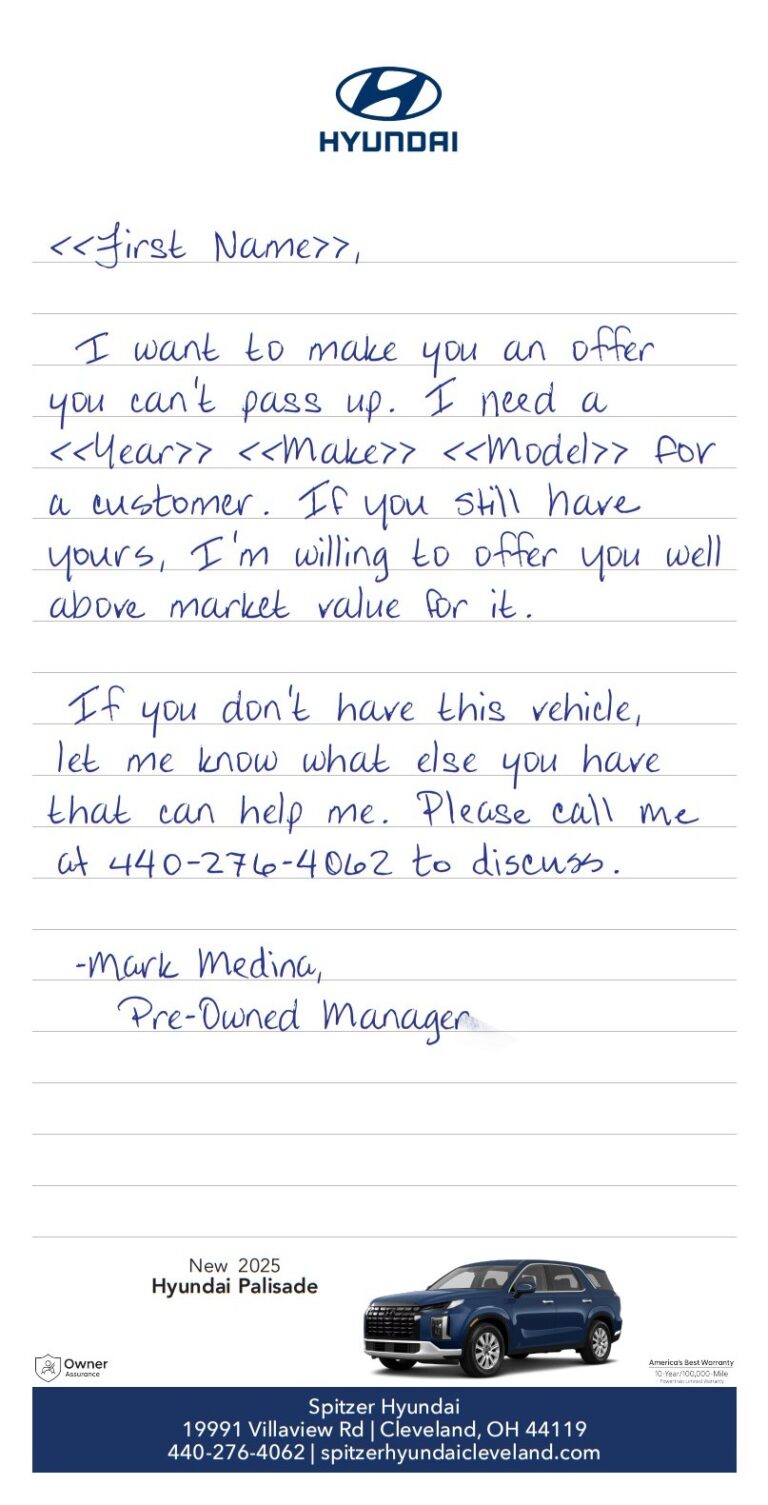 HYUNDAI
<<First Name>>,
I want to make you an offer
you can't pass up. I need a
<<Year>> <<Make>> <<Model>> for
a customer. If you still have
yours, I'm willing to offer you well
above market value for it.
If you don't have this vehicle,
let me know what else you have
that can help me. Please call me
at 440-276-4062 to discuss.
-Mark Medina,
Pre-Owned Manager
New 2025
Hyundai Palisade
Owner
Assurance
America's Best Warranty
10-Year/100,000-Mile
Powertrain Limited Warranty
Spitzer Hyundai
19991 Villaview Rd | Cleveland, OH 44119
440-276-4062 | spitzerhyundaicleveland.com